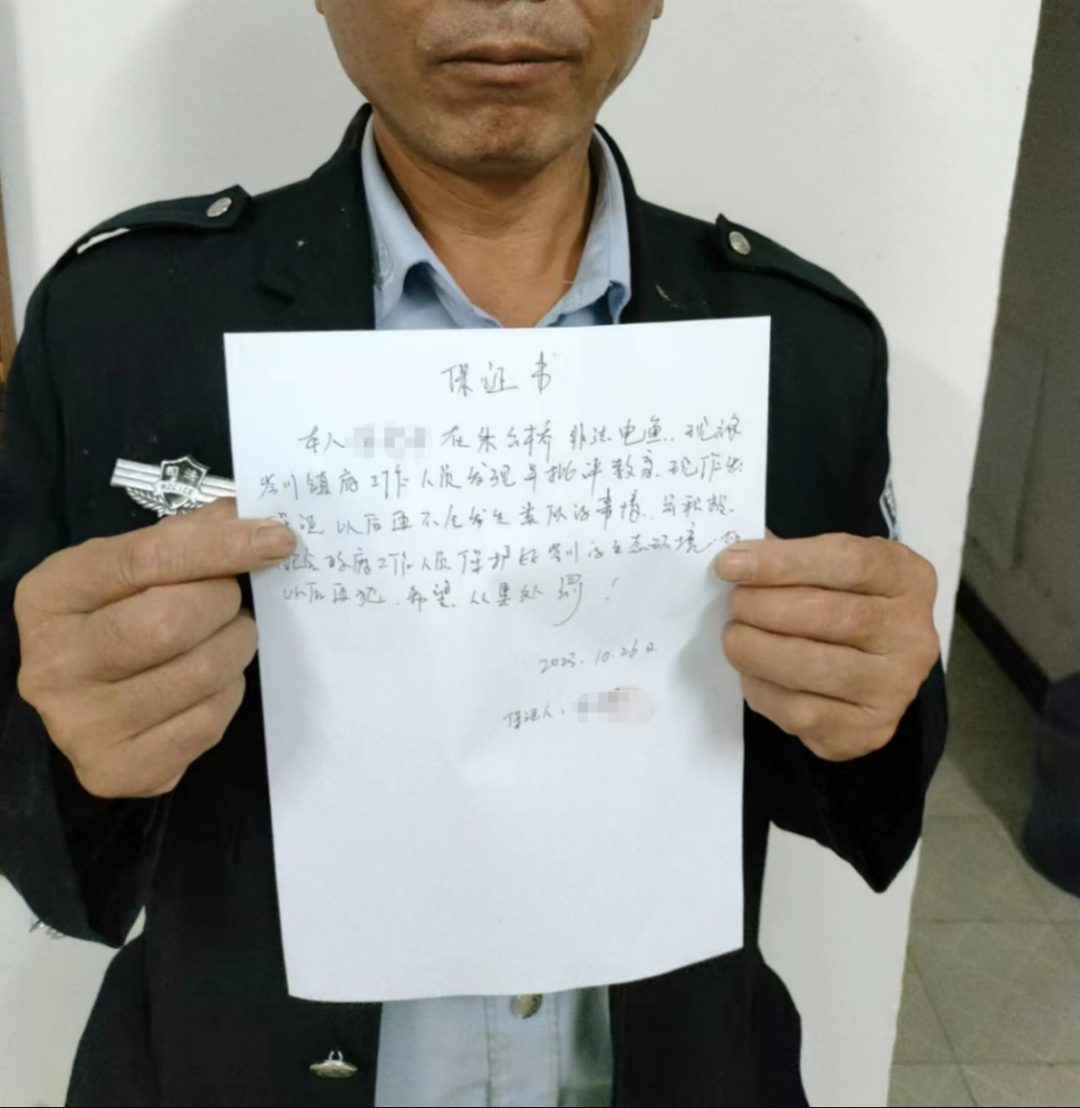 保证书
本人 在朱台桥非法电鱼，现被
岩川镇府工作人员发现并批评教育，现作出
保证，以后再不会发生类似的事情，并积极
配合政府工作人员保护好岩川的生态环境，如
以后再犯，希望从重处罚！
2023.10.26日
保证人：
司法